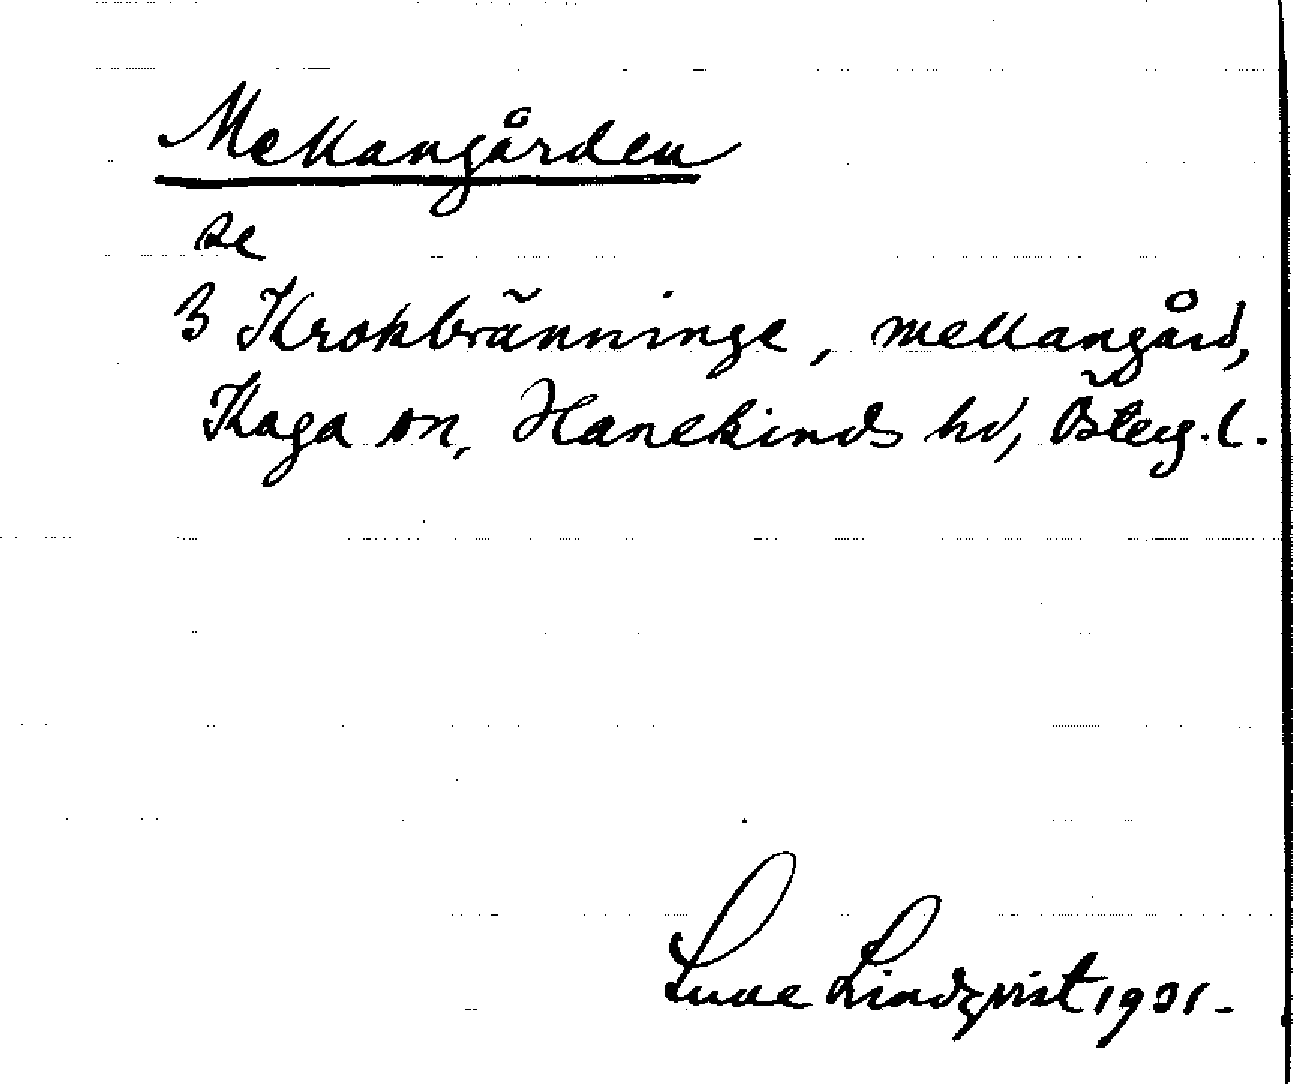 Mellangården
se
3 Krokbränninge, mellangård,
Kaga sn, Hanekinds hd, Österg.l.
Sune Lindqvist 1931.